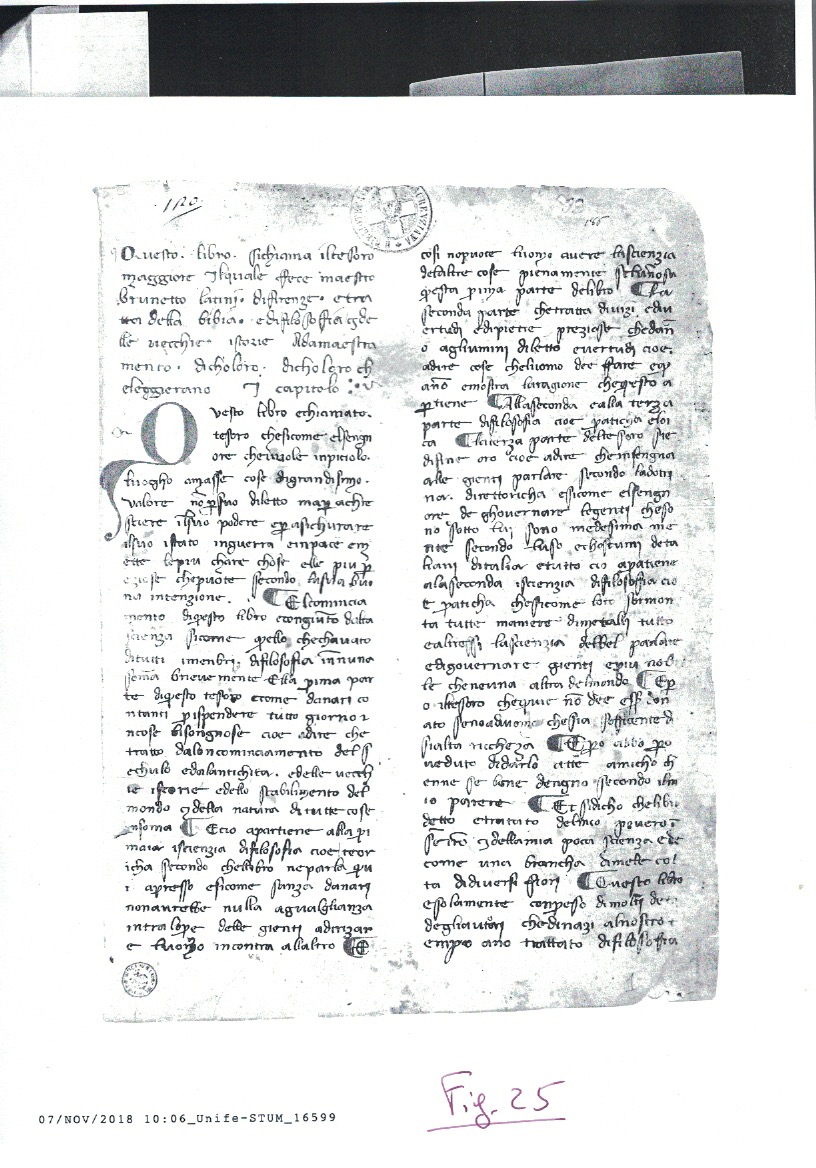 Questo. libro. sichiama iltesoro
maggiore Ilquale ffece maestro
brunetto latini. difirenze. etra
tta della bibia. edifilosofia
lle vecchie istorie Adamaestra
mento. dicholoro. dicholoro ch
eleggierano I capitolo
Questo libro echiamato.
tesoro chesicome elsengn
ore chevuole inpiciolo.
luogho amasse cose digrandisimo.
valore diletto achre
sciere ilsuo podere asichurare
ilsuo istato inguerra empace
lepiu chare chose elle piu
eziose chepuote secondo lasua
na intenzione. ¶ Elcomincia
mento diquesto libro della
scienza sicome quello
dituti imenbri. difilosofia innuna
soma brievemente Ella prima par
te diquesto tesoro ecome danari co
ntanti pispendere tutto giorno i
ncose bisongnose cioe adire che
tratta dalonconinciamento del s
echulo edalantichita. edelle vecch
ie istorie edello stabilimento del
mondo della natura ditutte cose
insoma ¶ Ecio apartiene alla pi
maia iscienzia difilosofia cioe teor
icha secondo chellibro neparla qu
i apresso esicome sanza danari
nonavrebbe nulla aguaglianza
intralope delle gienti adrizar
e luomo incontra allaltro ¶ E
cosi nopuote luomo avere lascienzia
dellaltre cose pienamente
questa prima parte delibro ¶ La
seconda parte chetratta divizi edi
ertudi edipietre preziose chedan
o agliuimini diletto evertudi cioe.
adire cose cheluomo dee ffare
ano emostra laragione chequesto a
ptiene ¶ Allaseconda ealla terza
parte difilosofia cioe paticha eloi
ca ¶ Laterza parte deltesoro sie
difine oro cioe adire cheinsengna
alle gienti parlare secondo ladotri
na. direttoricha esicome elsengn
ore de ghovernare legenti cheso
no sotto lui sono medesima me
nte secondo luso echostumi deta
liani ditalia etutto cio apatiene
alaseconda iscienzia difilosofia cio
e paticha chesicome loro sormon
ta tutte maniere dimetalli tutto
ealtressi lascienzia delbel parlare
edigovernare gienti epiu nob
le cheneuna altra delmondo ¶ Ep
o iltesoro chequie no dee esse don
ato senoaduomo chesia sofficente di
sialta richeza ¶ Epo abbo po
veduto didarlo atte amicho ch
enne se bene dengno secondo ilm
io parere ¶ Et sidicho chelibr
detto etrattato delmio povero
dellamia poca scienza ede
come una brancha dimele col
ta didiversi fiori ¶ Questo libro
esolamente conpesso dimolti de
degliautori chedinazi alnostro t
empo ano trattato difilosofia
07/NOV/2018 10:06_Unife-STUM_16599
Fig. 25